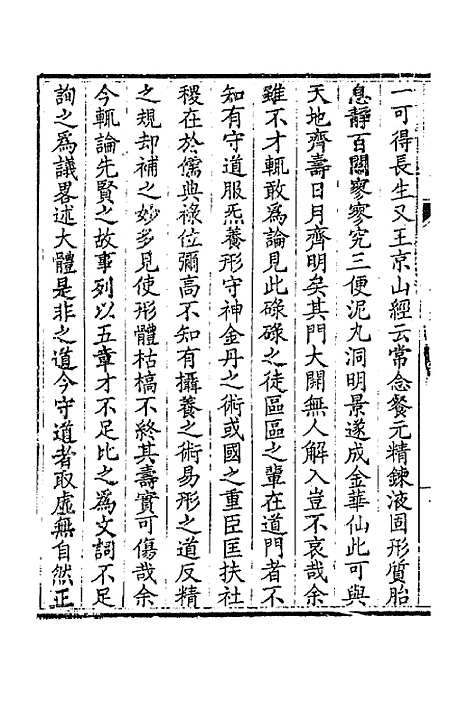 一可得長生又王京山經云常念餐元精鍊液固形質胎
息靜百關寥寥究三便泥丸洞明景遂成金華仙此可與
天地齊壽日月齊明矣其門大開無人解入豈不哀哉余
雖不才輒敢為論見此碌碌之徒區區之輩在道門者不
知有守道服炁養形守神金丹之術或國之重臣匡扶社
稷在於儒典祿位彌高不知有攝養之術易形之道反精
之規却補之妙多見使形體枯槁不終其壽實可傷哉余
今輒論先賢之故事列以五章才不足比之為文詞不足
詢之為議畧述大體是非之道今守道者取虛無自然正